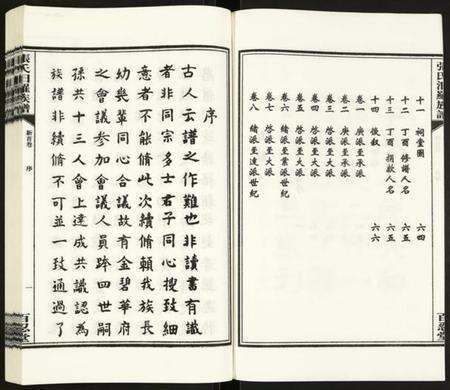 張氏汨羅族譜
十一　祠堂圖　六四
十二　丁酉修譜人名　六五
十三　丁酉捐款人名　六五
十四　後叙　六六
卷一　庚派至承派
卷二　庚派至承派
卷三　啓派至大派
卷四　啓派至大派
卷五　啓派至大派
卷六　啓派至大派
卷七　緒派至業派世紀
卷八　緒派至達派世紀
百忍堂
序
古人云譜之作難也非讀書有識
者非同宗多士君子同心搜致細
意者不能脩此次續脩賴我族長
幼幾輩同心合議故有金碧華府
之會議參加會議人員跨四世嗣
孫共十三人會上達成共識認為
族譜非續脩不可並一致通過了
張氏汨羅族譜
新首卷　序
一
百忍堂